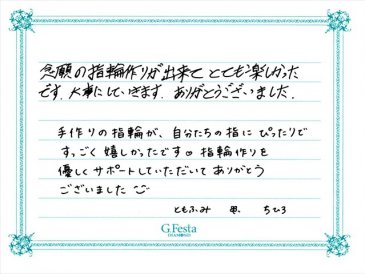 念願の指輪作りが出来て とても楽しかった
です。大事にしていきます。ありがとうございました。
手作りの指輪が、自分たちの指に ぴったりで
すっごく 嬉しかったです 指輪作りを
優しく サポートしていただいて ありがとう
ございました
ともふみ ちひろ
G.Festa
DIAMONDS